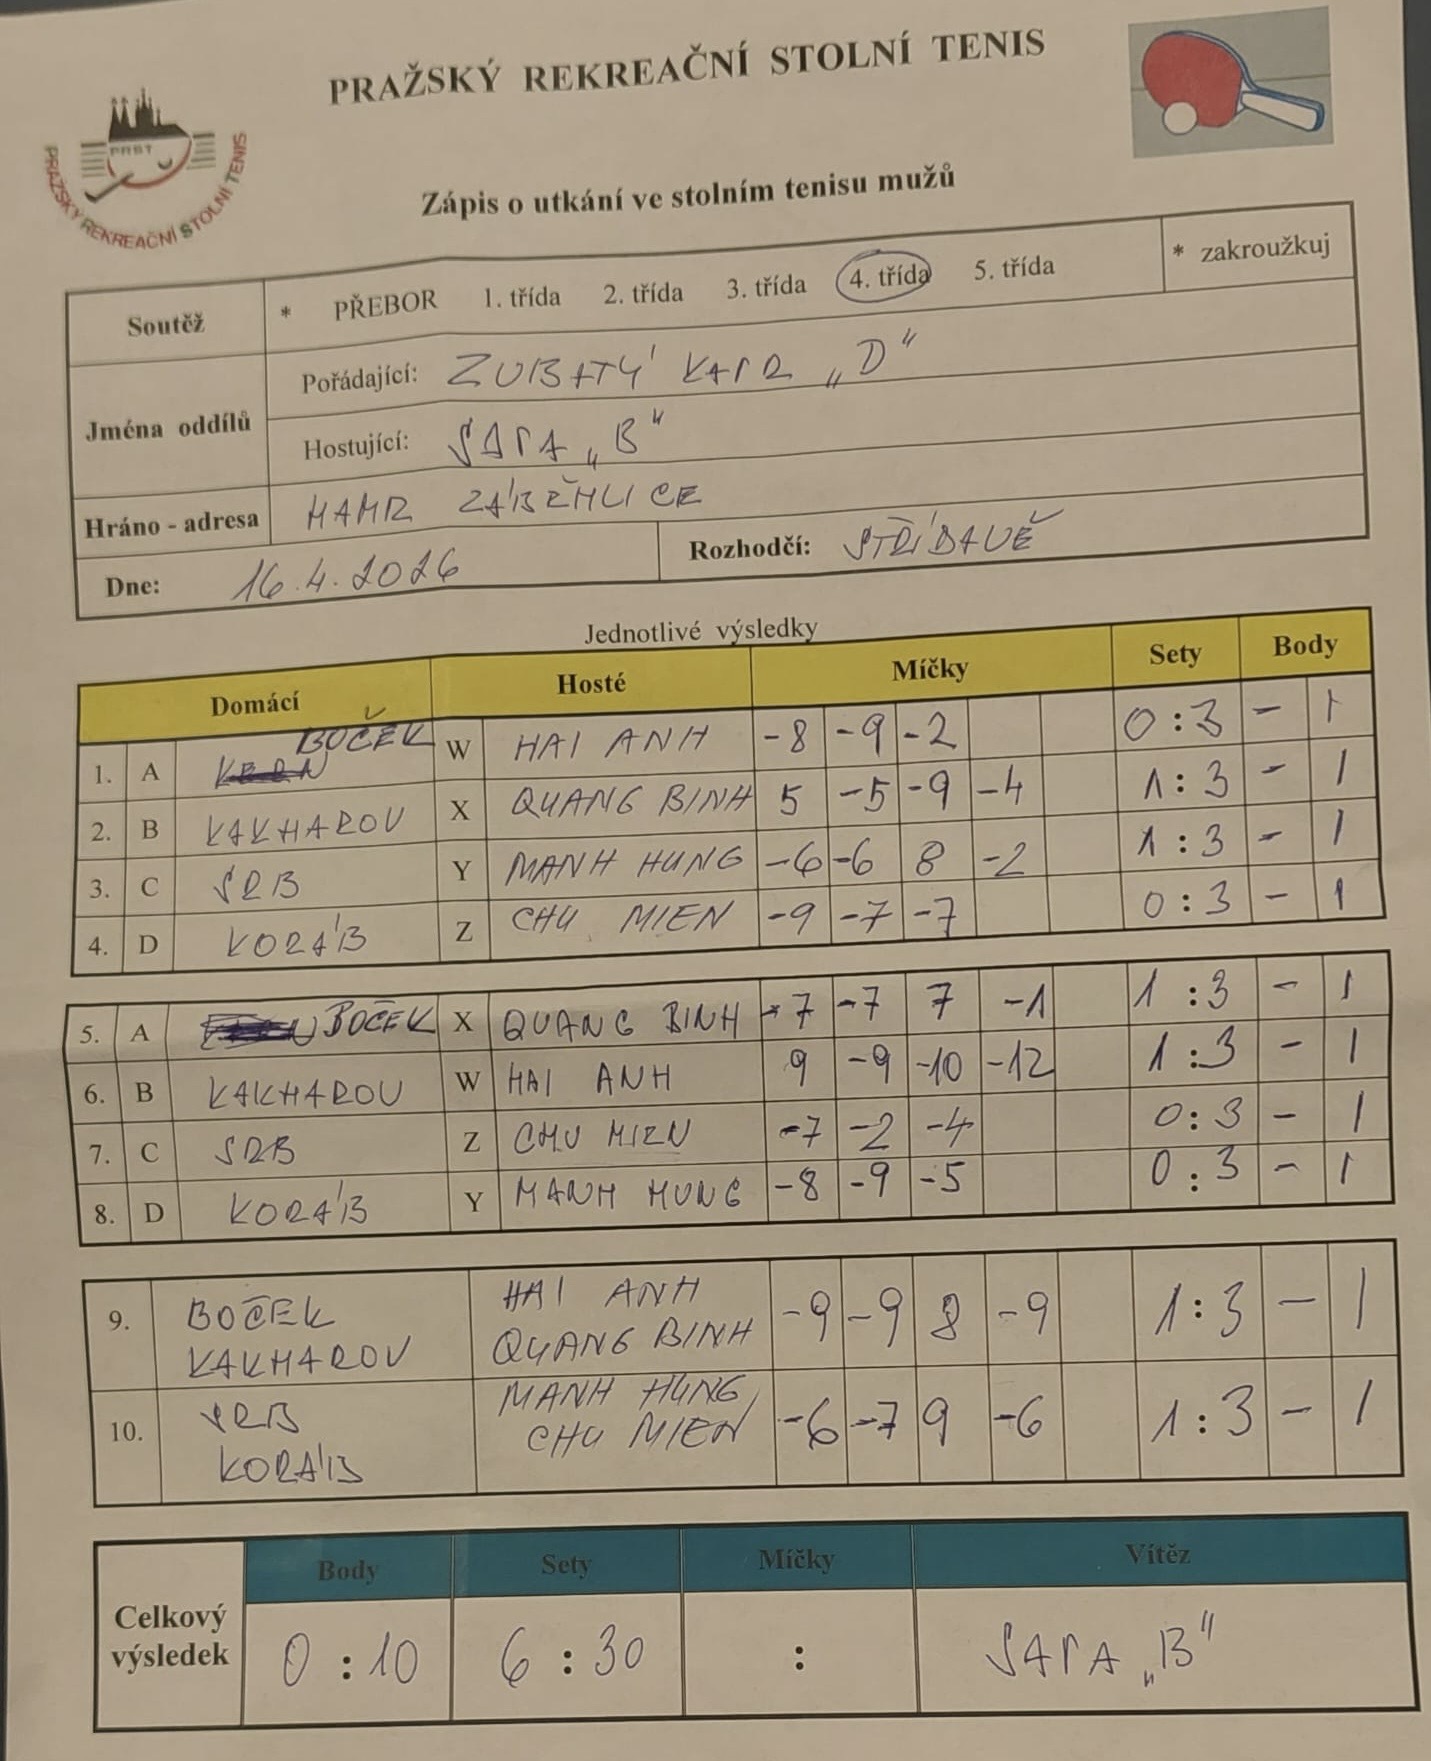 PRAŽSKÝ REKREAČNÍ STOLNÍ TENIS
PRST
PRAŽSKÝ REKREAČNÍ STOLNÍ TENIS
Zápis o utkání ve stolním tenisu mužů
Soutěž * PŘEBOR 1. třída 2. třída 3. třída 4. třída 5. třída * zakroužkuj
Jména oddílů
Pořádající: ZUBATÝ KAPR „D"
Hostující: SAPA „B"
Hráno - adresa HAMR ZÁBĚHLICE
Dne: 16.4.2026 Rozhodčí: STŘÍDAVĚ
Jednotlivé výsledky
Domácí Hosté Míčky Sety Body
1. A BOČEK W HAI ANH -8 -9 -2 0:3 - 1
2. B KAKHAROV X QUANG BINH 5 -5 -9 -4 1:3 - 1
3. C SRB Y MANH HUNG -6 -6 8 -2 1:3 - 1
4. D KORÁB Z CHU MIEN -9 -7 -7 0:3 - 1
5. A BOČEK X QUANG BINH -7 -7 7 -1 1:3 - 1
6. B KAKHAROV W HAI ANH 9 -9 -10 -12 1:3 - 1
7. C SRB Z CHU MIEN -7 -2 -4 0:3 - 1
8. D KORÁB Y MANH HUNG -8 -9 -5 0:3 - 1
9. BOČEK HAI ANH -9 -9 8 -9 1:3 - 1
KAKHAROV QUANG BINH
10. SRB MANH HUNG -6 -7 9 -6 1:3 - 1
KORÁB CHU MIEN
Body Sety Míčky Vítěz
Celkový výsledek 0:10 6:30 : SAPA „B"